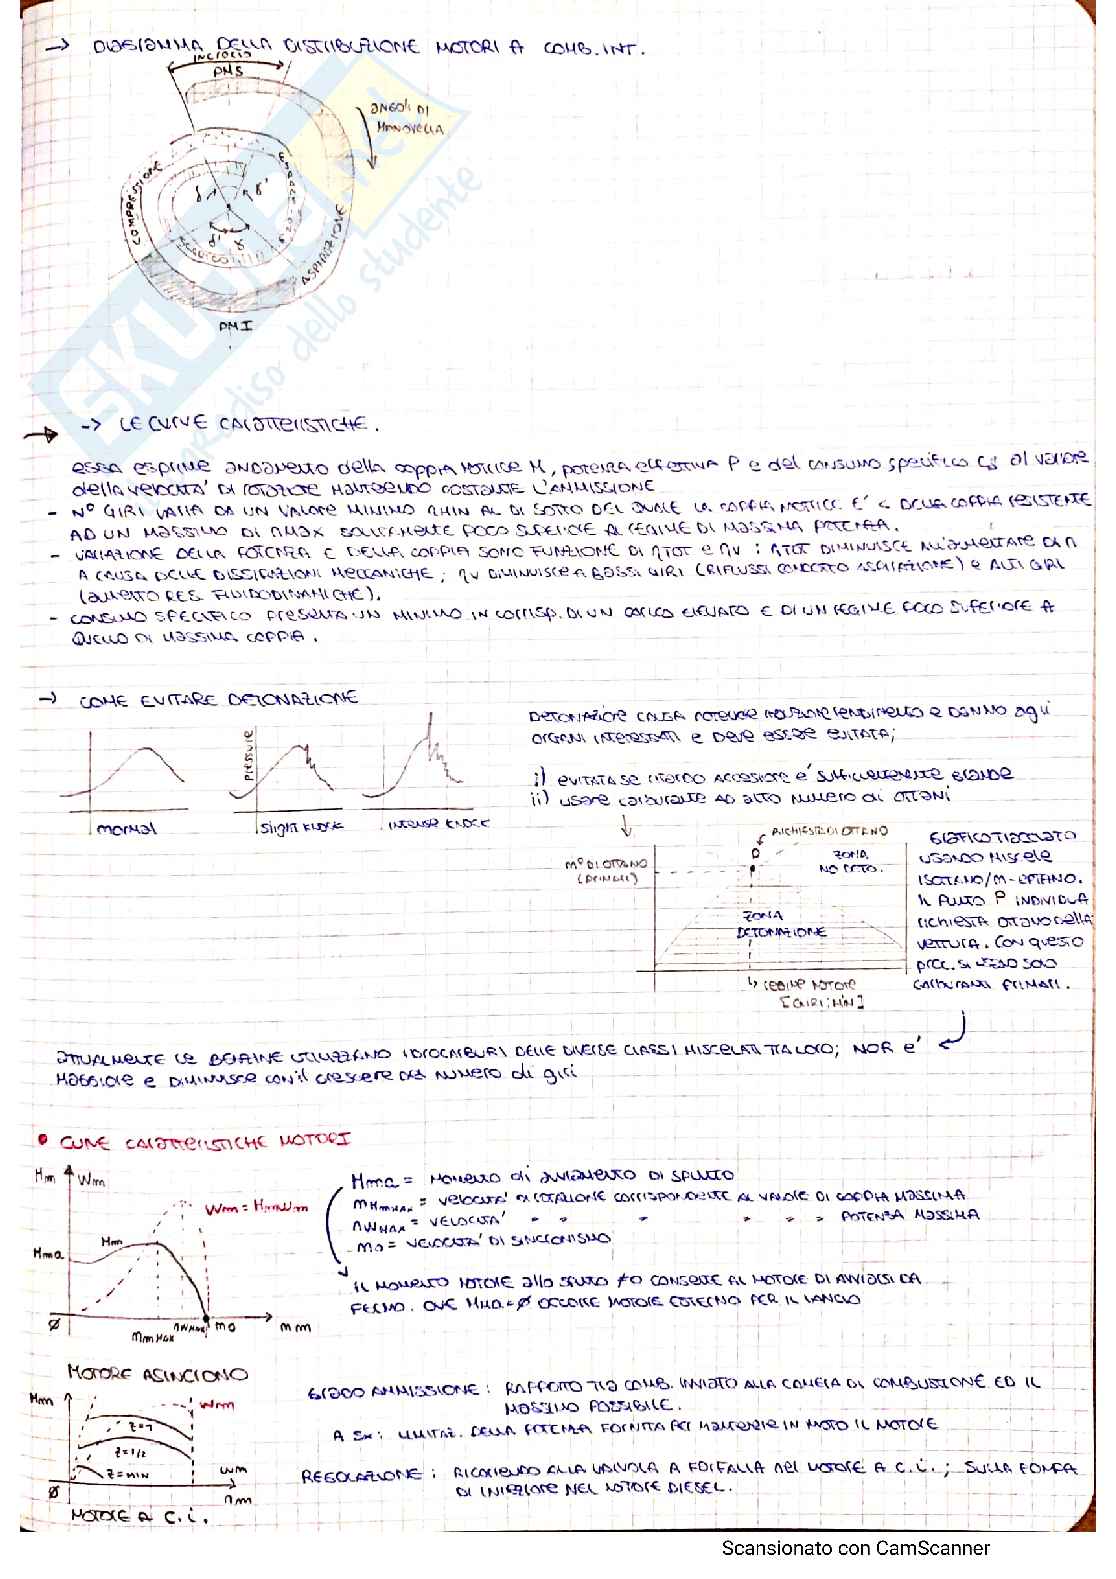 → DIAGRAMMA DELLA DISTRIBUZIONE MOTORI A COMB. INT.
INCROCIO
PMS
ANGOLI DI
MANOVELLA
COMPRESSIONE
ASPIRAZIONE
SCARICO
γ γ'
δ' δ
PMI
SKUOLA.net
paradiso dello studente
→ -> LE CURVE CARATTERISTICHE.
ESSA ESPRIME ANDAMENTO della COPPIA MOTRICE M, POTENZA EFFETTIVA P e del CONSUMO SPECIFICO Cs al VARIARE
della VELOCITA' DI ROTAZIONE MANTENENDO COSTANTE L'AMMISSIONE
- N° GIRI VARIA DA UN VALORE MINIMO nMIN AL DI SOTTO DEL QUALE LA COPPIA MOTRICE E' < DELLA COPPIA RESISTENTE
AD UN MASSIMO DI nMAX SOLITAMENTE POCO SUPERIORE AL REGIME DI MASSIMA POTENZA.
- VARIAZIONE DELLA POTENZA E DELLA COPPIA SONO FUNZIONE DI ηTOT e ηV : ηTOT DIMINUISCE ALL'AUMENTARE DI n
A CAUSA DELLE DISSIPAZIONI MECCANICHE; ηV DIMINUISCE A BASSI GIRI (RIFLUSSI CONDOTTO ASPIRAZIONE) e ALTI GIRI
(AUMENTO RES. FLUIDODINAMICHE).
- CONSUMO SPECIFICO PRESENTA UN MINIMO IN CORRISP. DI UN CARICO ELEVATO E DI UN REGIME POCO SUPERIORE A
QUELLO DI MASSIMA COPPIA.
→ COME EVITARE DETONAZIONE
Pressure
normal
Slight KNOCK
INTENSE KNOCK
DETONAZIONE CAUSA RENDIMENTO e DANNO agli
ORGANI INTERESSATI e DEVE ESSERE EVITATA;
i) EVITATA SE RITARDO ACCENSIONE e' SUFFICIENTEMENTE GRANDE
ii) USARE CARBURANTE AD ALTO NUMERO di OTTANI
RICHIESTA DI OTTANO
N° DI OTTANO
(PRIMARI)
P
ZONA
NO DETO.
ZONA
DETONAZIONE
↳ REGIME MOTORE
[GIRI/MIN]
GRAFICO TRACCIATO
USANDO MISCELE
ISOTTANO/N-EPTANO.
IL PUNTO P INDIVIDUA
RICHIESTA OTTANO della
VETTURA. CON QUESTO
PROC. SI USANO SOLO
CARBURANTI PRIMARI.
ATTUALMENTE LE BENZINE UTILIZZANO IDROCARBURI DELLE DIVERSE CLASSI MISCELATI TRA LORO; NOR e'
MAGGIORE e DIMINUISCE CON il CRESCERE DEL NUMERO di giri
• CURVE CARATTERISTICHE MOTORI
Mm Wm
Wm = Mm ωm
Mm
Mma
Ø
nMmMAX
nWMAX
n0
nm
MOTORE ASINCRONO
Mma = MOMENTO di AVVIAMENTO DI SPUNTO
nMmMAX = VELOCITA' DI ROTAZIONE CORRISPONDENTE AL VALORE DI COPPIA MASSIMA
nWMAX = VELOCITA' " " " " " " POTENZA MASSIMA
n0 = VELOCITA' DI SINCRONISMO
IL MOMENTO MOTORE allo SPUNTO ≠0 CONSENTE AL MOTORE DI AVVIARSI DA
FERMO. OVE Mma = Ø OCCORRE MOTORE ESTERNO PER IL LANCIO
Mm
Wm
Z=1
Z=1/2
Z=MIN
ωm
Ø
nm
MOTORE A C.i.
GRADO AMMISSIONE : RAPPORTO TRA COMB. INVIATO ALLA CAMERA DI COMBUSTIONE ED IL
MASSIMO POSSIBILE.
A SX: LIMITAZ. DELLA POTENZA FORNITA PER MANTENERE IN MOTO IL MOTORE
REGOLAZIONE : RICORRENDO ALLA VALVOLA A FARFALLA NEL MOTORE A C.i. ; SULLA POMPA
DI INIEZIONE NEL MOTORE DIESEL.
Scansionato con CamScanner